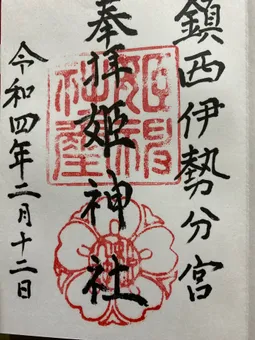 鎮西伊勢分宮
奉拝姫神社
令和四年二月十二日